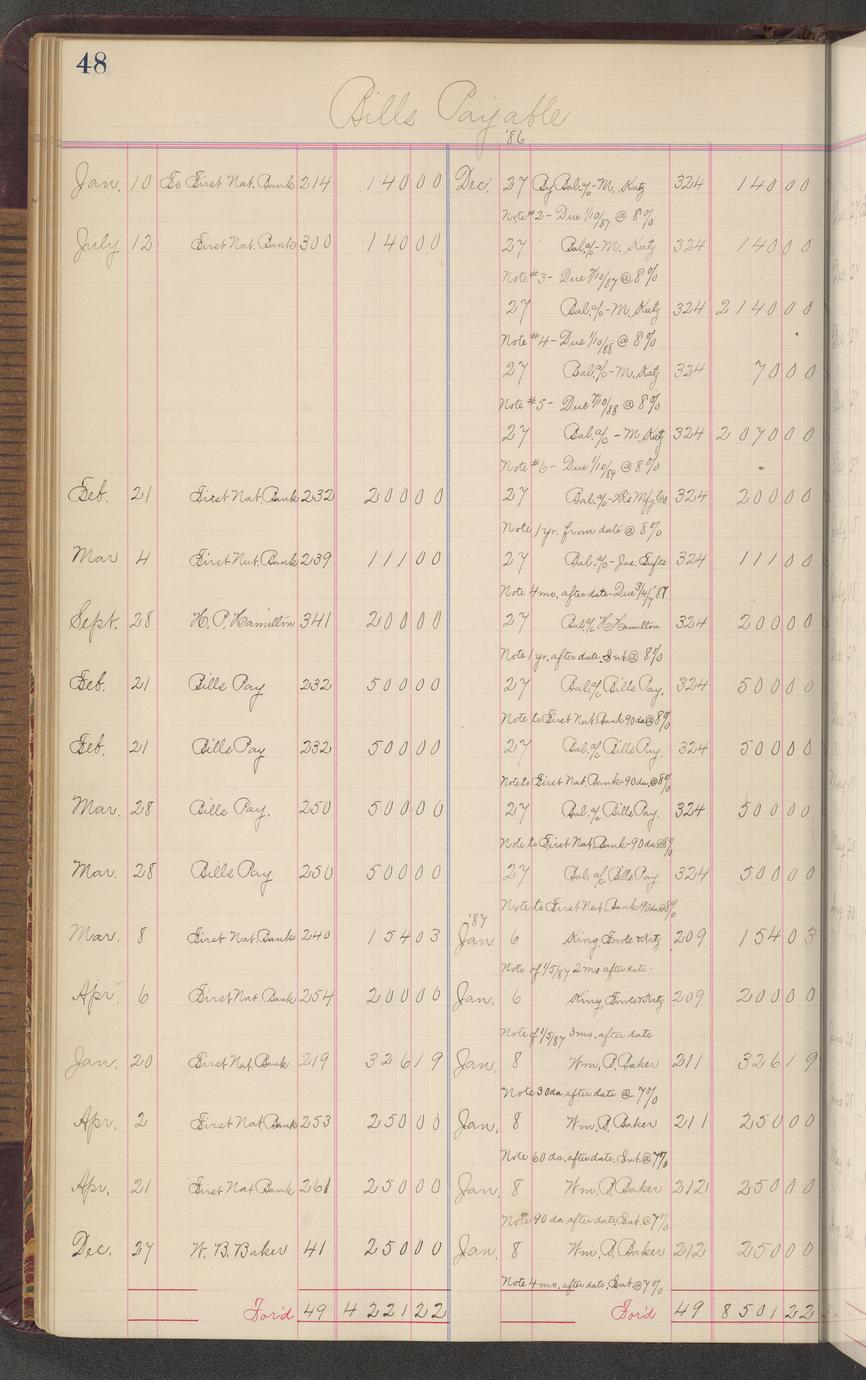 48
Bills Payable
'86
Jan. 10 To First Nat. Bank 214 140 00 Dec. 27 By Bal. a/c - M. Katz 324 140 00
Note #2 - Due 1/10/87 @ 8%
July 12 First Nat. Bank 300 140 00 27 Bal. a/c - M. Katz 324 140 00
Note #3 - Due 7/10/87 @ 8%
27 Bal. a/c - M. Katz 324 2140 00
Note #4 - Due 1/10/88 @ 8%
27 Bal. a/c - M. Katz 324 70 00
Note #5 - Due 7/10/88 @ 8%
27 Bal. a/c - M. Katz 324 2070 00
Note #6 - Due 1/10/89 @ 8%
Feb. 21 First Nat. Bank 232 200 00 27 Bal. a/c - Mfg. Co. 324 200 00
Note 1 yr. from date @ 8%
Mar 4 First Nat. Bank 239 111 00 27 Bal. a/c - Jas. 324 111 00
Note 4 mo. after date - Due 3/4/'87
Sept. 28 H. P. Hamilton 341 200 00 27 Bal. a/c H. Hamilton 324 200 00
Note 1 yr. after date. Int. @ 8%
Feb. 21 Bills Pay 232 500 00 27 Bal. a/c Bills Pay. 324 500 00
Note to First Nat. Bank 90 da @ 8%
Feb. 21 Bills Pay 232 500 00 27 Bal. a/c Bills Pay. 324 500 00
Note to First Nat. Bank - 90 da. @ 8%
Mar. 28 Bills Pay. 250 500 00 27 Bal. a/c Bills Pay. 324 500 00
Note to First Nat. Bank - 90 da @ 8%
Mar. 28 Bills Pay 250 500 00 27 Bal. a/c Bills Pay 324 500 00
Note to First Nat. Bank 90 da @ 8%
'87
Mar. 8 First Nat. Bank 240 154 03 Jan 6 King, Fowle & Katz 209 154 03
Note of 1/5/87 2 mo after date.
Apr. 6 First Nat. Bank 254 200 00 Jan. 6 King, Fowle & Katz 209 200 00
Note of 1/5/87 3 mo. after date
Jan. 20 First Nat. Bank 219 326 19 Jan. 8 Wm. B. Baker 211 326 19
Note 30 da. after date @ 7%
Apr. 2 First Nat. Bank 253 250 00 Jan. 8 Wm. B. Baker 211 250 00
Note 60 da. after date. Int. @ 7%
Apr. 21 First Nat Bank 261 250 00 Jan. 8 Wm. B. Baker 212 250 00
Note 90 da. after date, Int. @ 7%
Dec. 27 W. B. Baker 41 250 00 Jan. 8 Wm. B. Baker 212 250 00
Note 4 mo. after date. Int @ 7%
For'd 49 4221 22 For'd 49 8501 22